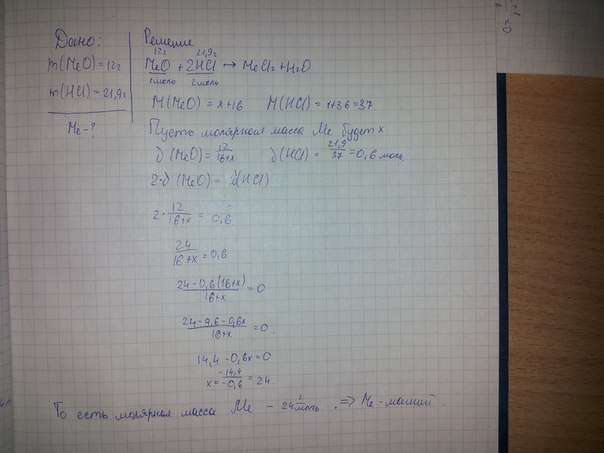 Дано:
m(MeO)=12г
m(HCl)=21,9г
Me-?
Решение
12г 21,9г
MeO + 2HCl → MeCl₂ + H₂O
1моль 2моль
M(MeO) = x+16 M(HCl) = 1+36=37
Пусть молярная масса Me будет x
ν(MeO) = 12/16+x ν(HCl) = 21,9/37 = 0,6 моль
2·ν(MeO) = ν(HCl)
2·12/16+x = 0,6
24/16+x = 0,6
24-0,6(16+x)/16+x = 0
24-9,6-0,6x/16+x = 0
14,4-0,6x=0
x = -14,4/-0,6 = 24
То есть молярная масса Me - 24 г/моль. ⇒ Me - магний